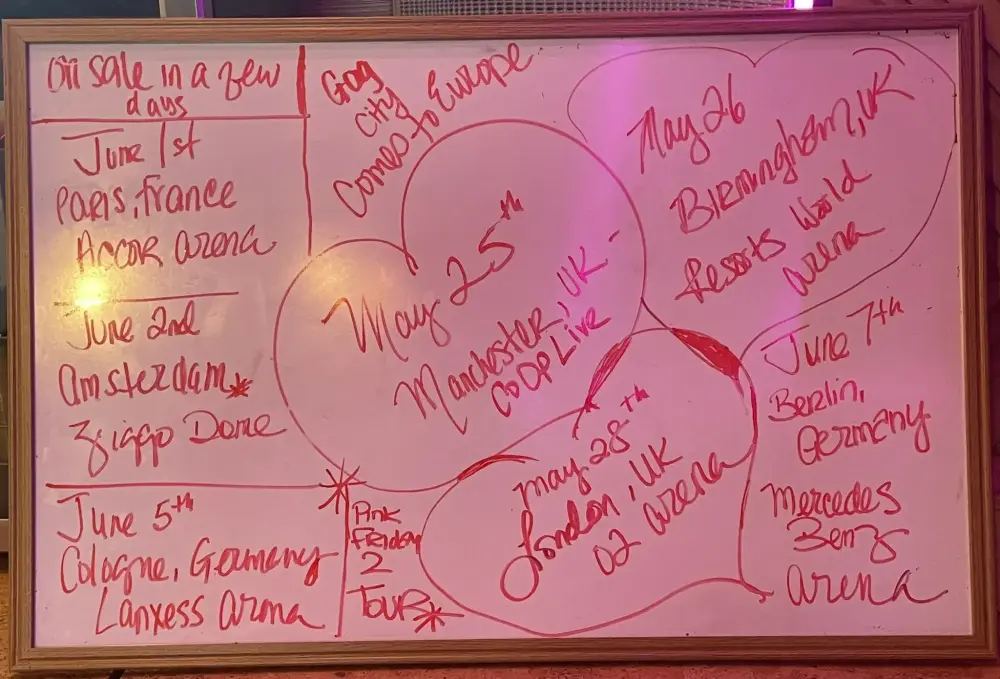 On sale in a few
days
June 1st
Paris, France
Accor arena
June 2nd
Amsterdam*
Ziggo Dome
June 5th
Cologne, Germany
Lanxess arena
Gag
City
Comes to Europe
May 25th
Manchester, UK -
CoOp Live
May 26
Birmingham, UK
Resorts World
arena
May 28th
London, UK
O2 arena
Pink
Friday
2
Tour*
June 7th
Berlin,
Germany
Mercedes
Benz
arena